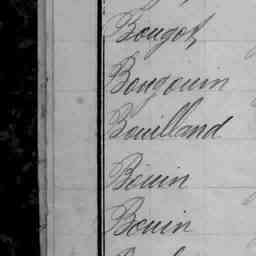 Bougot
Bougouin
Bouilland
Bouin
Bouin